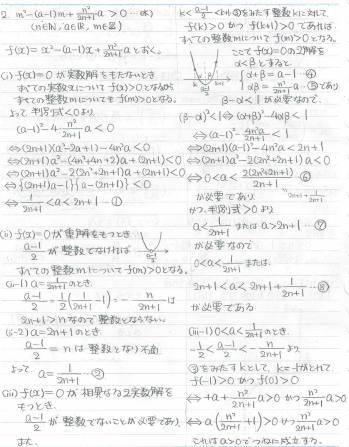 2. m²-(a-1)m+n²/(2n+1)a>0 …(*)
(n∈N, a∈R, m∈Z)
f(x)=x²-(a-1)x+n²/(2n+1)a とおく。
(i) f(x)=0 が実数解をもたないとき
すべての実数xについてf(x)>0となるから
すべての整数mについてもf(m)>0となる。
よって 判別式<0より
(a-1)²-4・n²/(2n+1)a<0
⇔(2n+1)(a²-2a+1)-4n²a<0
⇔(2n+1)a²-(4n²+4n+2)a+(2n+1)<0
⇔(2n+1)a²-2(2n²+2n+1)a+(2n+1)<0
⇔{(2n+1)a-1}{a-(2n+1)}<0
⇔1/(2n+1)<a<2n+1 …①
(ii) f(x)=0 が重解をもつとき
(a-1)/2 が整数でなければ
すべての整数mについてf(m)>0となる。
(ii-1) a=1/(2n+1)のとき、
(a-1)/2=1/2(1/(2n+1)-1)=-n/(2n+1)は
2n+1>nなので整数とならない。
(ii-2) a=2n+1のとき、
(a-1)/2=nは整数となり不適
よって a=1/(2n+1) …②
(iii) f(x)=0 が相異なる2実数解を
もつとき、
(a-1)/2 が整数でないことが必要であり、
また、
k<(a-1)/2<k+1 ③をみたす整数kに対して、
f(k)>0かつf(k+1)>0であれば
すべての整数mについてf(m)>0となる。
ここでf(x)=0の2解を
α<βとすると
α+β=a-1 …④
αβ=n²/(2n+1)a …⑤であり
β-α<1が必要なので、
(β-α)²<1⇔(α+β)²-4αβ<1
⇔(a-1)²-4n²a/(2n+1)<1
⇔(2n+1)(a-1)²-4n²a<2n+1
⇔(2n+1)a²-2(2n²+2n+1)a<0
⇔0<a<2(2n²+2n+1)/(2n+1) ⑥
が必要であり、 2n+1+1/(2n+1)
かつ、判別式>0より
a<1/(2n+1) または a>2n+1 …⑦
が必要なので
0<a<1/(2n+1) または
2n+1<a<2n+1+1/(2n+1) …⑧
が必要である
(iii-1) 0<a<1/(2n+1)のとき、
-1/2<(a-1)/2<-n/(2n+1)より
③をみたすkとして、k=-1がとれて
f(-1)>0かつf(0)>0
⇔1+a-1+n²/(2n+1)a>0かつn²/(2n+1)a>0
⇔a(n²/(2n+1)+1)>0かつn²/(2n+1)a>0
これはa>0でつねに成立する。